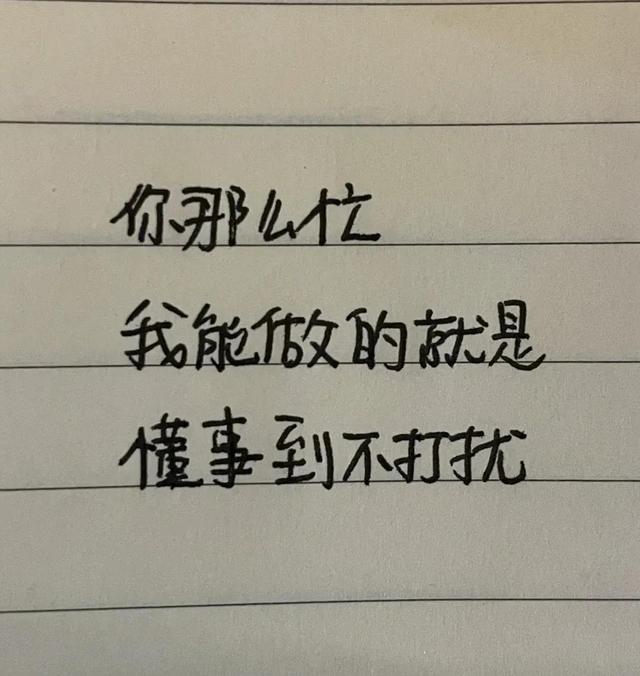 你那么忙
我能做的就是
懂事到不打扰